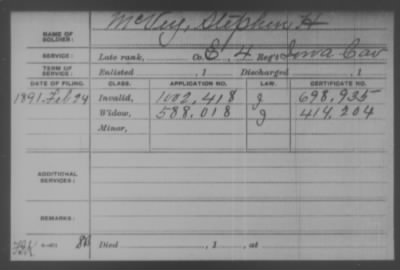 NAME OF SOLDIER: McVey, Stephen H
SERVICE: Late rank, Co. E, 4 Reg't Iowa Cav
TERM OF SERVICE: Enlisted , 1 Discharged , 1
DATE OF FILING. CLASS. APPLICATION NO. LAW. CERTIFICATE NO.
1891. Feb 24 Invalid, 1002,418 J 698,935
Widow, 588,018 J 414,204
Minor,
ADDITIONAL SERVICES:
REMARKS:
Died , 1 , at